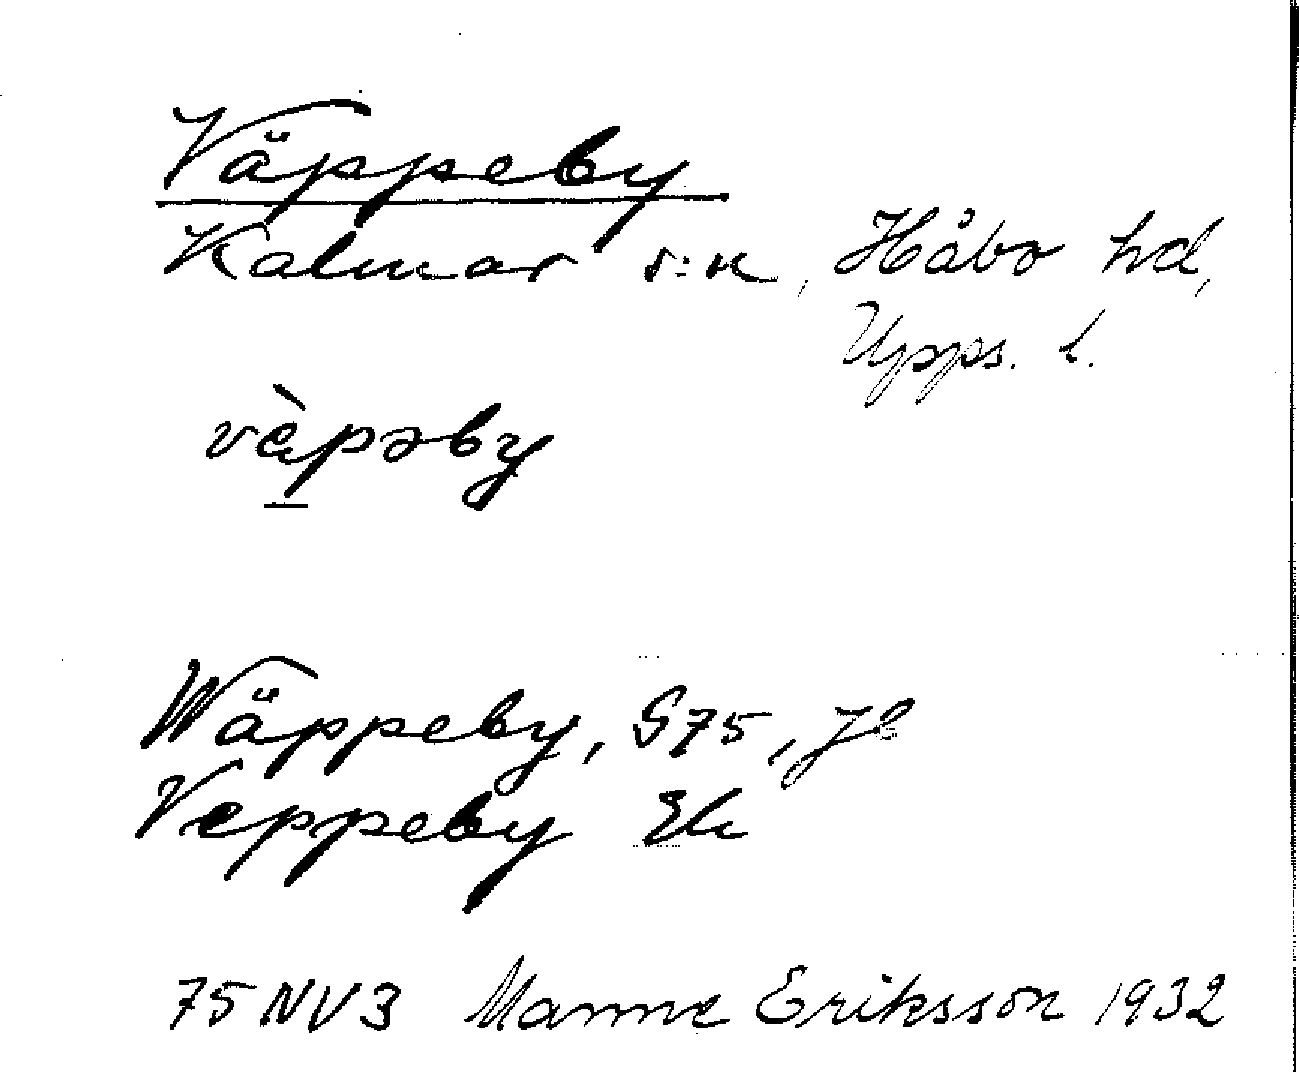 Väppeby
Kalmar s:n, Håbo hd,
Upps. l.
vàpəby
Wäppeby, G75, Jb
Veppeby Ek
75 NV 3 Manne Eriksson 1932